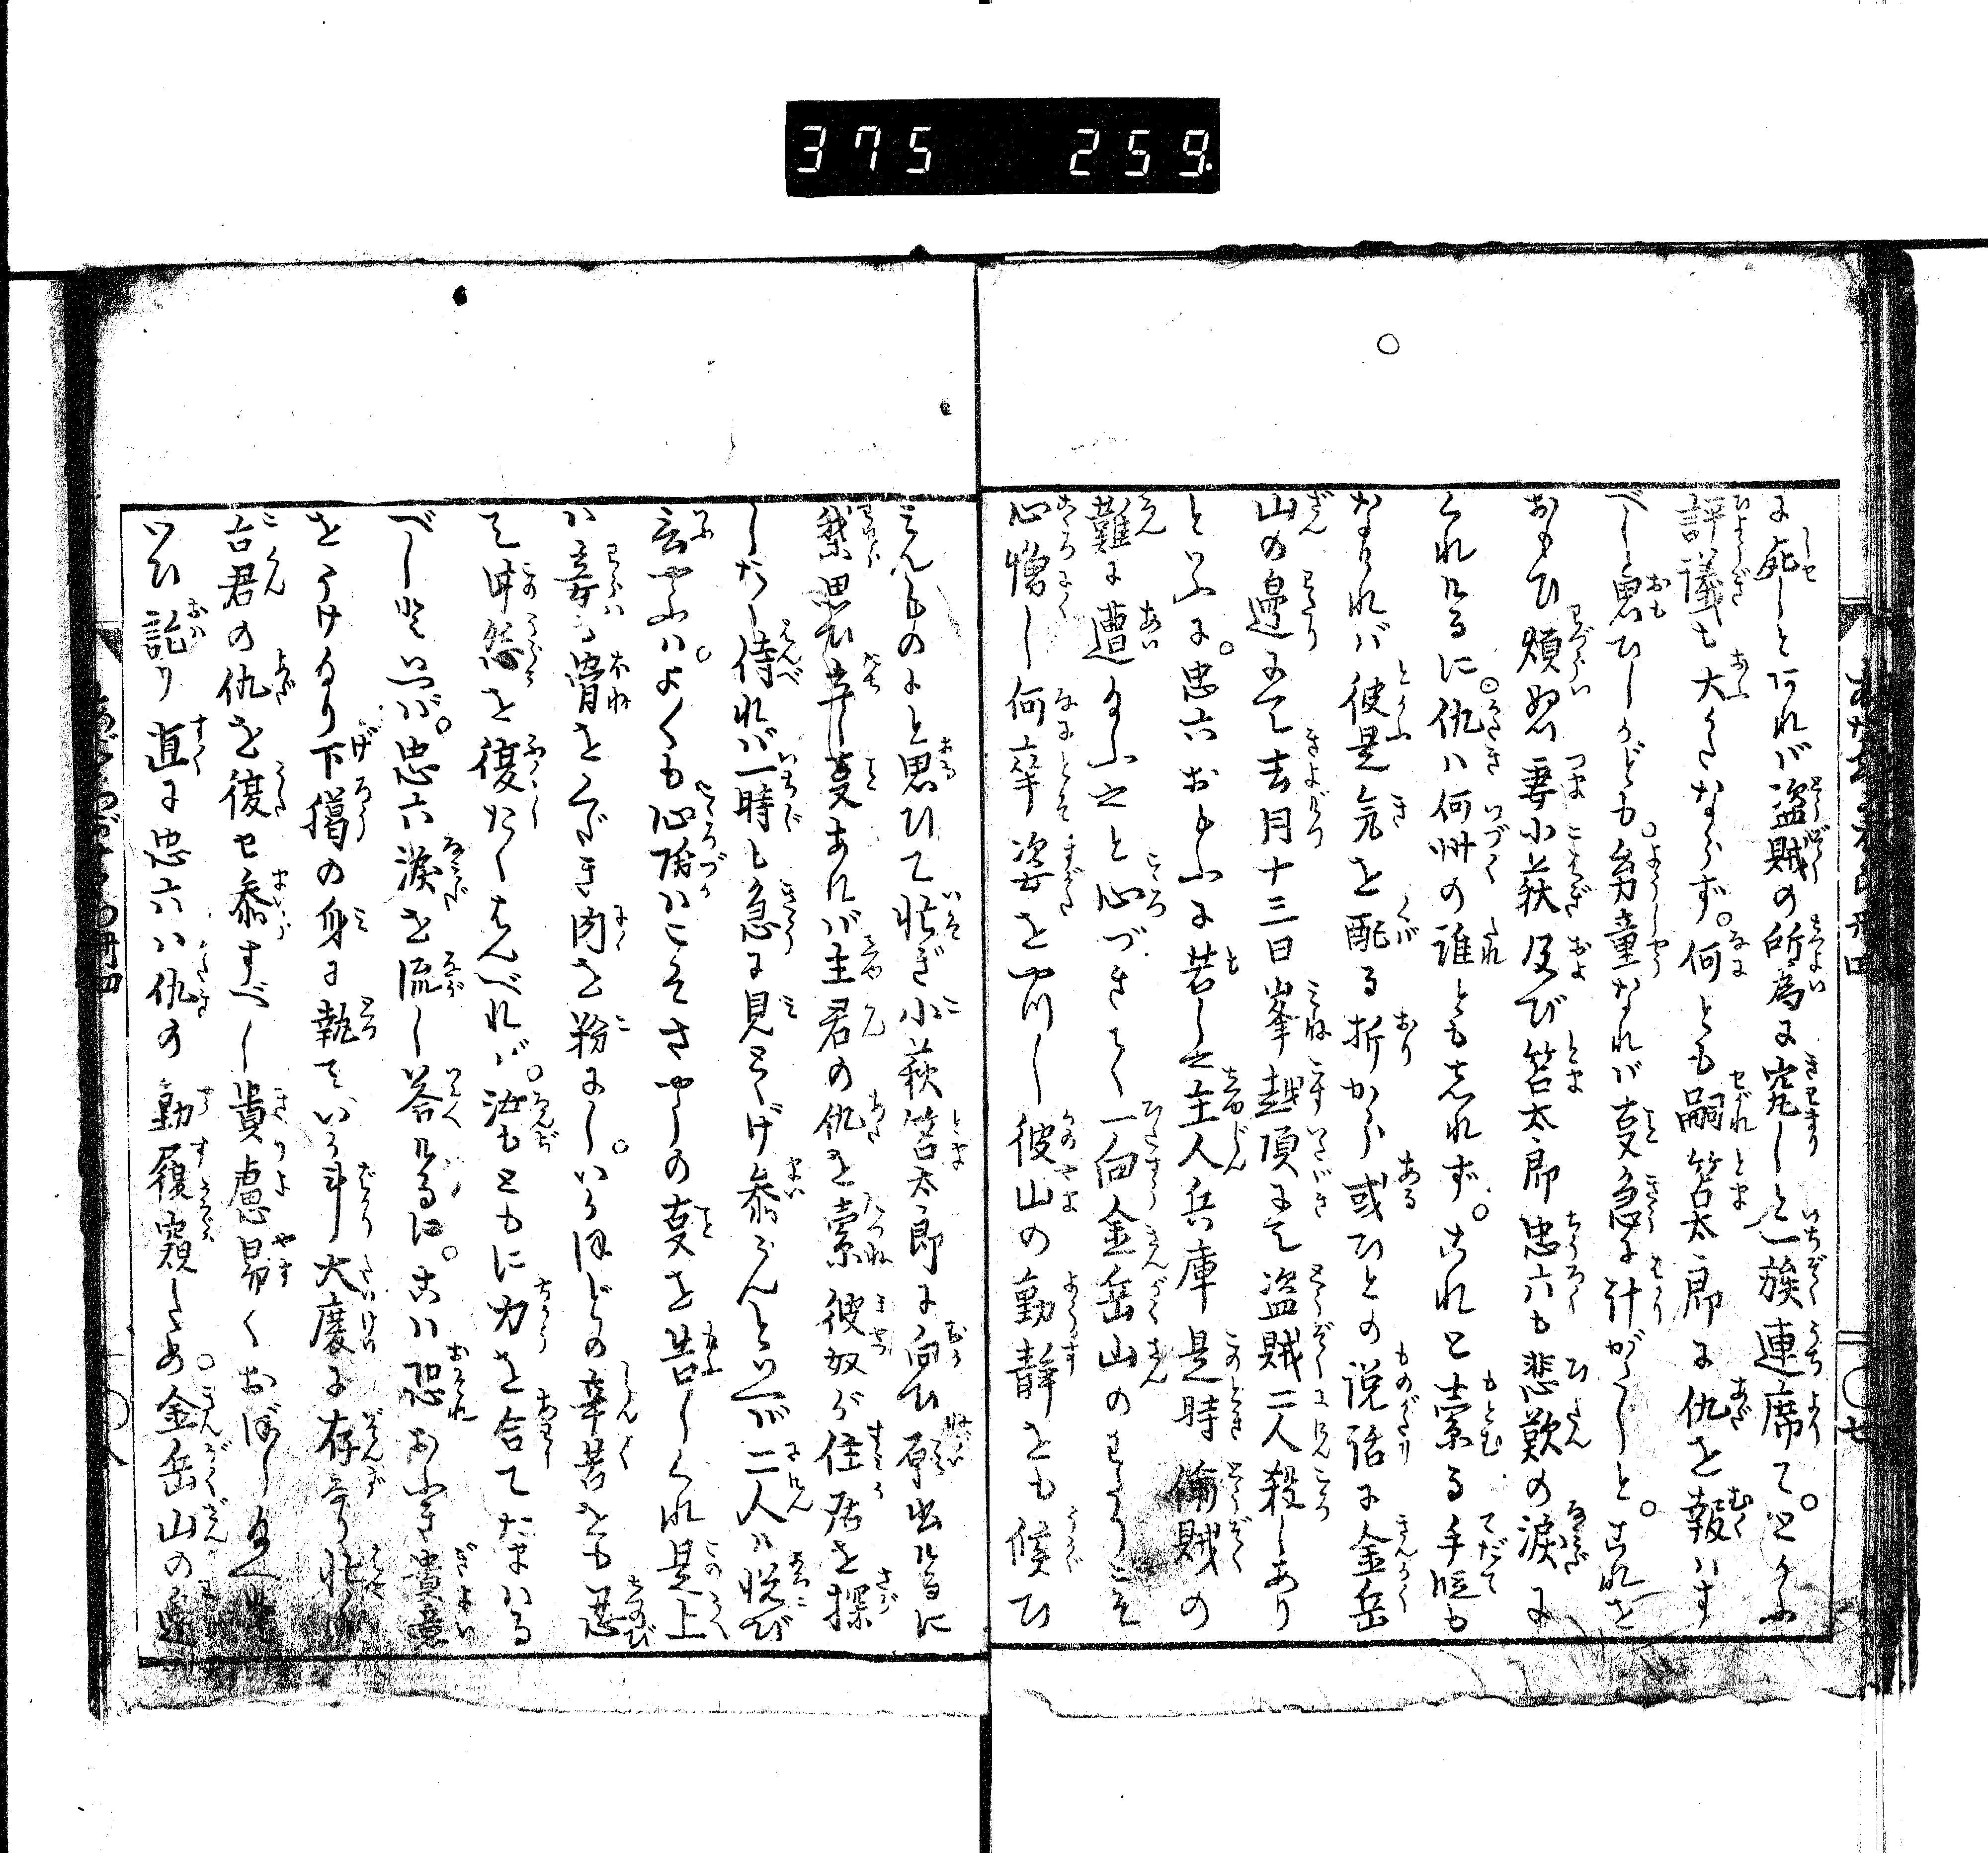 375 259.
に死しとあれバ盗賊の所為に究しと一族連席て。とかふ
評議も大かたならず。何とも嗣笘太郎に仇を報ハす
べしと思ひしかども。幼童なれバ亊急に計がたしと。これを
おもひ煩怒妻小萩及び笘太郎忠六も悲歎の涙に
くれけるに。仇ハ何州の誰ともしれず。これと索る手段も
なけれバ彼是気を配る折から或ひとの説話に金岳
山の辺にて去月十三日峯越頂にて盗賊二人殺しあり
といふに。忠六おもふに若し主人兵庫是時偷賊の
難に遭給ふかと心づきて一向金岳山のかたこそ
心憎し何卒姿をやつし彼山の動静をも候ひ
みんものにと思ひて壮ぎ小萩笘太郎に向ひ願出けるに
繁思ひ立し亊あれバ主君の仇を索彼奴が住居を探
したく侍れバ一時も急に見とゞけ参らんといへバ二人ハ悦び
云やふハ。よくも心附ハこそさやうの亊を告しくれ是上
ハ辛き骨をくだき肉を粉にし。いかほどの辛苦をも忍
て此怨を復たくはんべれバ。汝もともに力を合てたまハる
べしといへバ。忠六涙を流し答けるに。こハ恐おふき貴意
をうけ給り下臈の身に執てハいか斗大慶に存奉り
古君の仇を復せ参すべし貴慮易くおぼし給へ
いひ訖り直に忠六ハ仇の動履窺しため。金岳山の辺
〇七
〇八